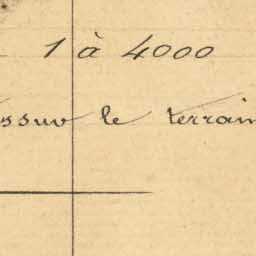 1 à 4000
ssur le terrain